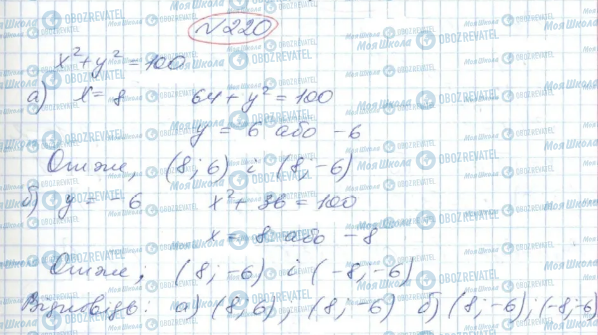 №220
x² + y² = 100
а) x = 8 64 + y² = 100
y = 6 або -6
Отже, (8; 6) і (8; -6)
б) y = -6 x² + 36 = 100
x = 8 або -8
Отже, (8; -6) і (-8; -6)
Відповідь: а) (8; 6), (8; -6) б) (8; -6); (-8; -6)